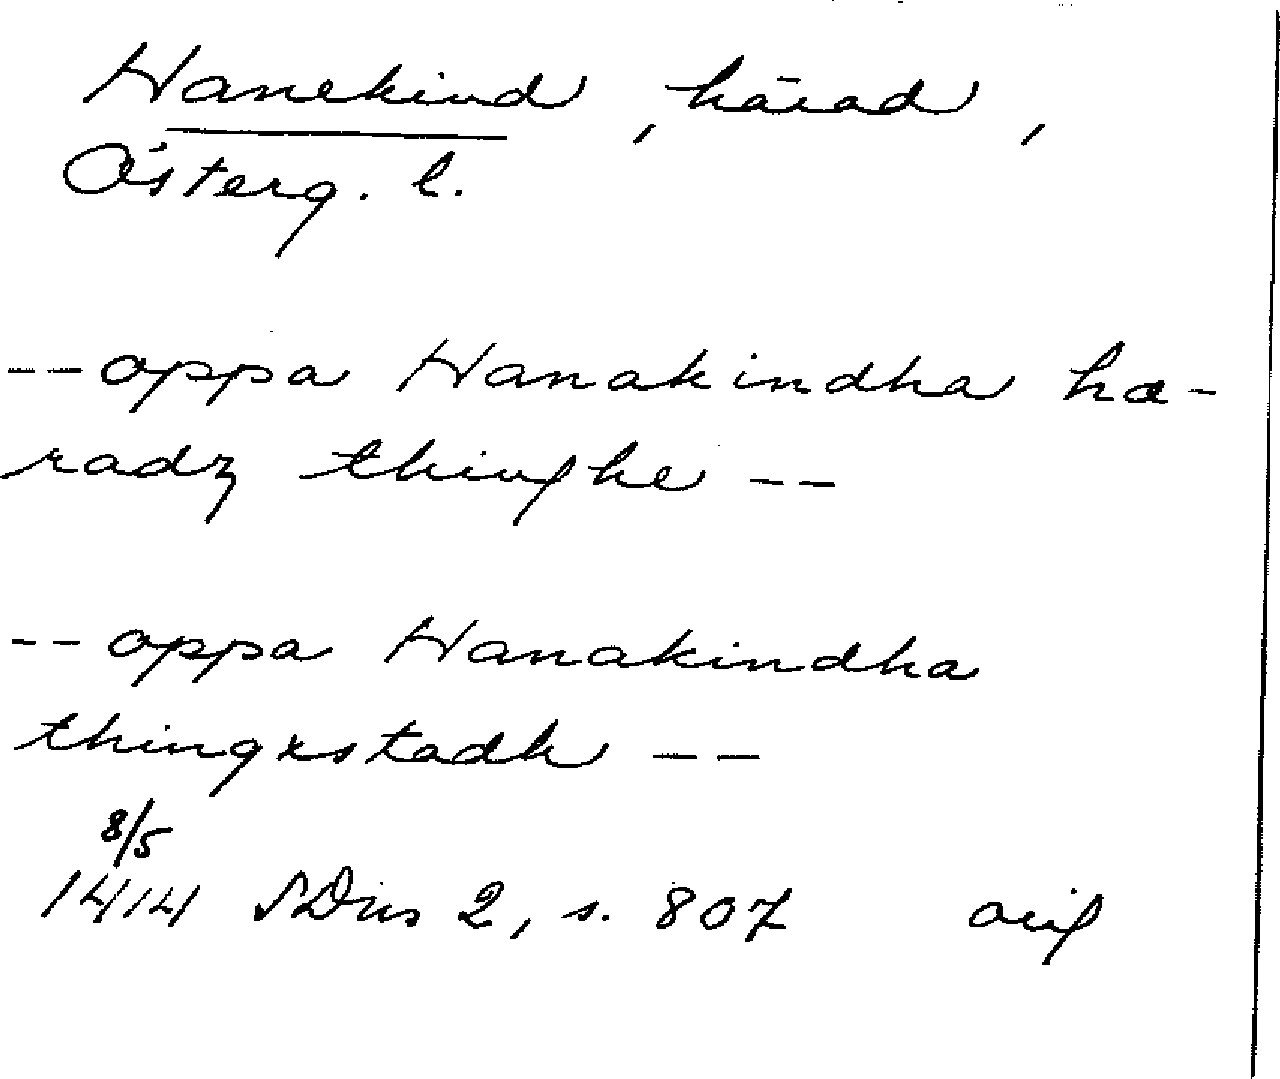 Hanekind, härad,
Österg. l.
-- oppa Hanakindha hæ-
radz thinghe --
-- oppa Hanakindha
thingxstadh --
8/5
1414 SDns 2, s. 807 orig